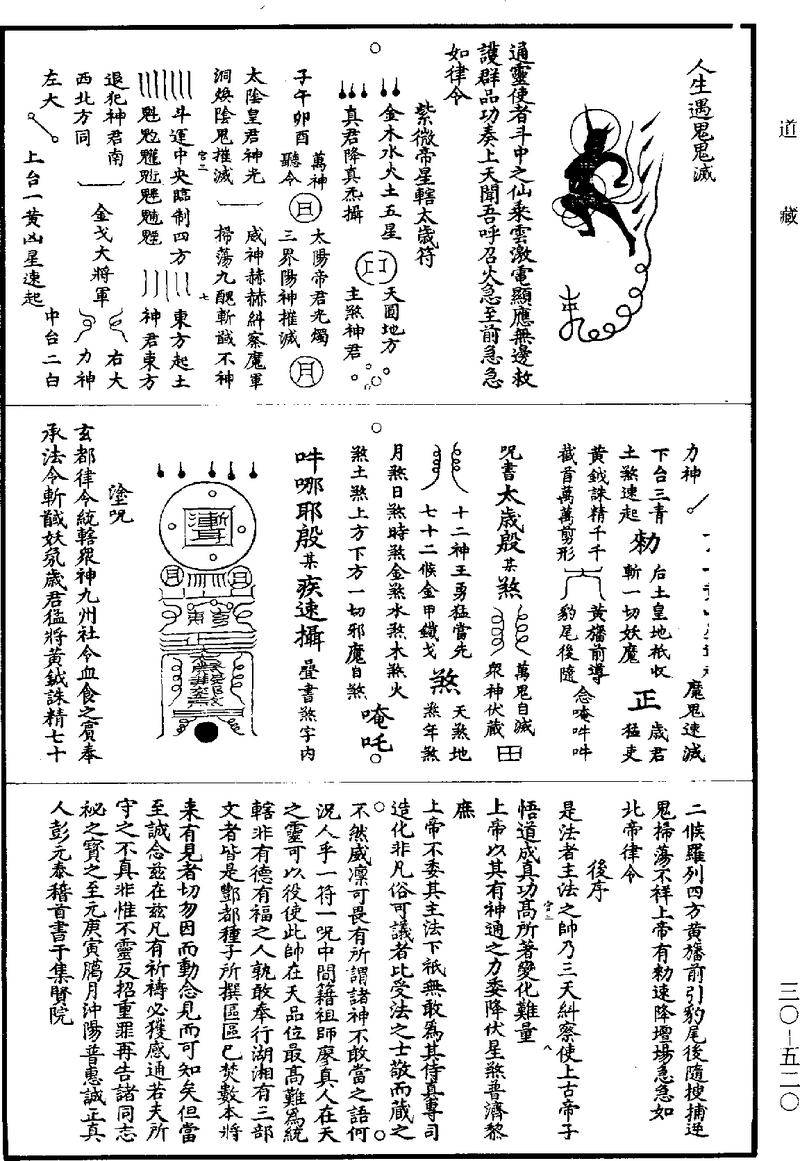 道藏
人生遇鬼鬼滅
通靈使者斗中之仙乘雲激電顯應無邊救
護群品功奏上天聞吾呼召火急至前急急
如律令
紫微帝星轄太歲符
金木水火土五星
天圓地方
真君降真炁攝
主煞神君
子午卯酉
萬神聽令
日
太陽帝君光燭
三界陽神摧滅
月
太陰皇君神光
洞煥陰鬼摧滅
威神赫赫糾察魔軍
掃蕩九醜斬馘不神
斗運中央臨制四方
東方起土
魁𩲃魓
神君東方
退犯神君南
西北方同
金戈大將軍
右大
力神
左大
上台一黃凶星速起
中台二白
力神
魔鬼速滅
下台三青
土煞速起
勑
后土皇地祇收
斬一切妖魔
正
歲君
猛吏
黃鉞誅精千千
截首萬萬剪形
黃旛前導
豹尾後隨
念唵吽吽
咒書太歲殷某煞
萬鬼自滅
眾神伏藏
田
十二神王勇猛當先
七十二候金甲鐵戈
煞
天煞地
煞年煞
月煞日煞時煞金煞水煞木煞火
煞土煞上方下方一切邪魔自煞
唵吒
吽哪耶殷某疾速攝
疊書煞字內
塗咒
玄都律令統轄眾神九州社令血食之賓奉
承法令斬馘妖氛歲君猛將黃鉞誅精七十
二候羅列四方黃旛前引豹尾後隨搜捕逆
鬼掃蕩不祥上帝有勑速降壇場急急如
北帝律令
後序
是法者主法之帥乃三天糾察使上古帝子
悟道成真功高所著變化難量
上帝以其有神通之力委降伏星煞普濟黎
庶
上帝不委其主法下祇無敢為其侍真專司
造化非凡俗可議者比受法之士敬而藏之
不然威凜可畏有所謂諸神不敢當之語何
況人乎一符一呪中間籍祖師廖真人在天
之靈可以役使此帥在天品位最高難為統
轄非有德有福之人孰敢奉行湖湘有三部
文者皆是酆都種子所撰區區已焚數本將
來有見者切勿因而動念見而可知矣但當
至誠念茲在茲凡有祈禱必獲感通若夫所
守之不真非惟不靈反招重罪再告諸同志
祕之寶之至元庚寅臈月沖陽普惠誠正真
人彭元泰稽首書于集賢院
三〇—五二〇